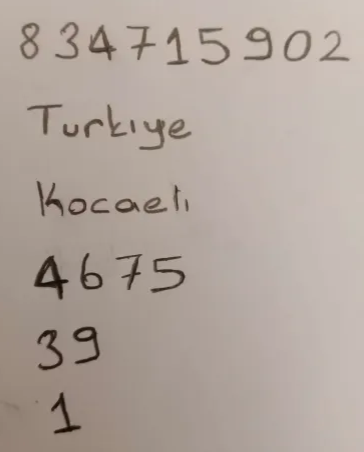 834715902
Turkıye
Kocaelı
4675
39
1